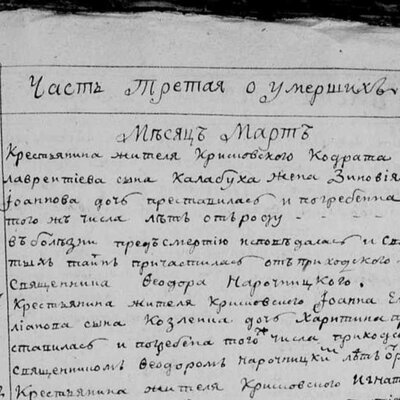 Часть Третая о умершихъ
Мѣсяцъ Мартъ
Крестьянина жителя Крисовского Кодрата
лаврентіева сына Калабуха жена Зиновія
Іоаннова дочь преставилась и погребенна
того жъ числа лѣтъ отъ роду
въ болѣзни предъ смертію исповѣдалась и свя
тыхъ таинъ причастилась отъ приходского
Священника Ѳеодора Нарочницкого.
Крестьянина жителя Крисовского Іоанна Ем
ліанова сына Козленка дочь Харитина пре
ставилась и погребена того числа приходс
священникомъ Ѳеодоромъ Нарочницкимъ лѣтъ
Крестьянина жителя Крисовского Игнат